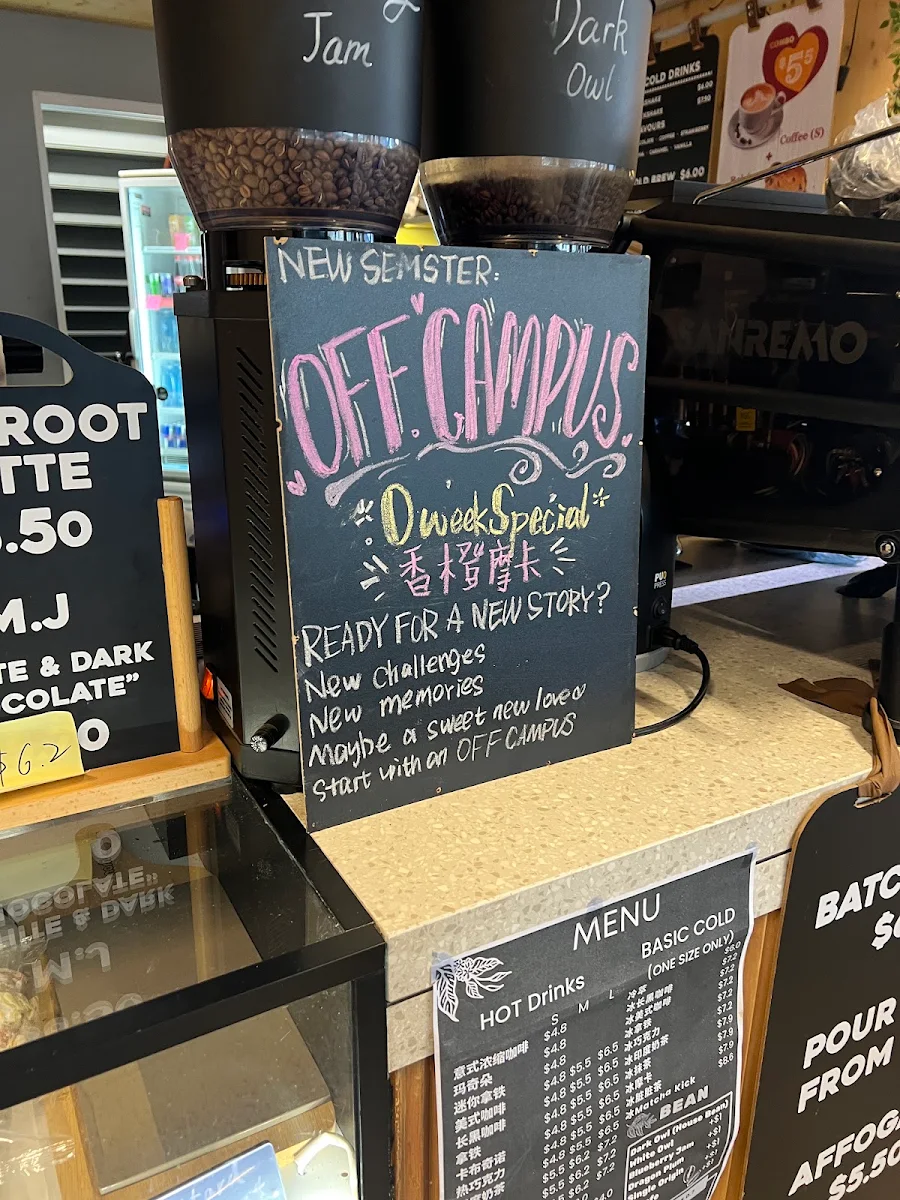 Jam
Dark
Owl
COLD DRINKS
$6.00
$7.50
COLD BREW $6.00
COMBO
$5.5
Coffee (S)
+
SANREMO
NEW SEMSTER:
OFF. CAMPUS.
O'week Special
香橙摩卡
READY FOR A NEW STORY?
New challenges
New memories
Maybe a sweet new love
Start with an OFF CAMPUS
PUQ
PRESS
ROOT
TTE
.50
M.J
TE & DARK
COLATE”
0
$6.2
MENU
HOT Drinks
BASIC COLD
(ONE SIZE ONLY)
S M L
意式浓缩咖啡 $4.8
玛奇朵 $4.8
迷你拿铁 $4.8
美式咖啡 $4.8 $5.5 $6.5
长黑咖啡 $4.8 $5.5 $6.5
拿铁 $4.8 $5.5 $6.5
卡布奇诺 $4.8 $5.5 $6.5
热巧克力
冷萃 $6.0
冰长黑咖啡 $7.2
冰美式咖啡 $7.2
冰拿铁 $7.2
冰巧克力 $7.2
冰印度奶茶 $7.2
冰抹茶 $7.9
冰摩卡 $7.9
冰脏脏茶
Matcha Kick $8.6
BEAN
Dark Owl (House Bean)
White Owl +$1
Blueberry Jam +$1
Dragon Plum +$1
Single Origin
BATC
POUR
FROM
AFFOGA
$5.50